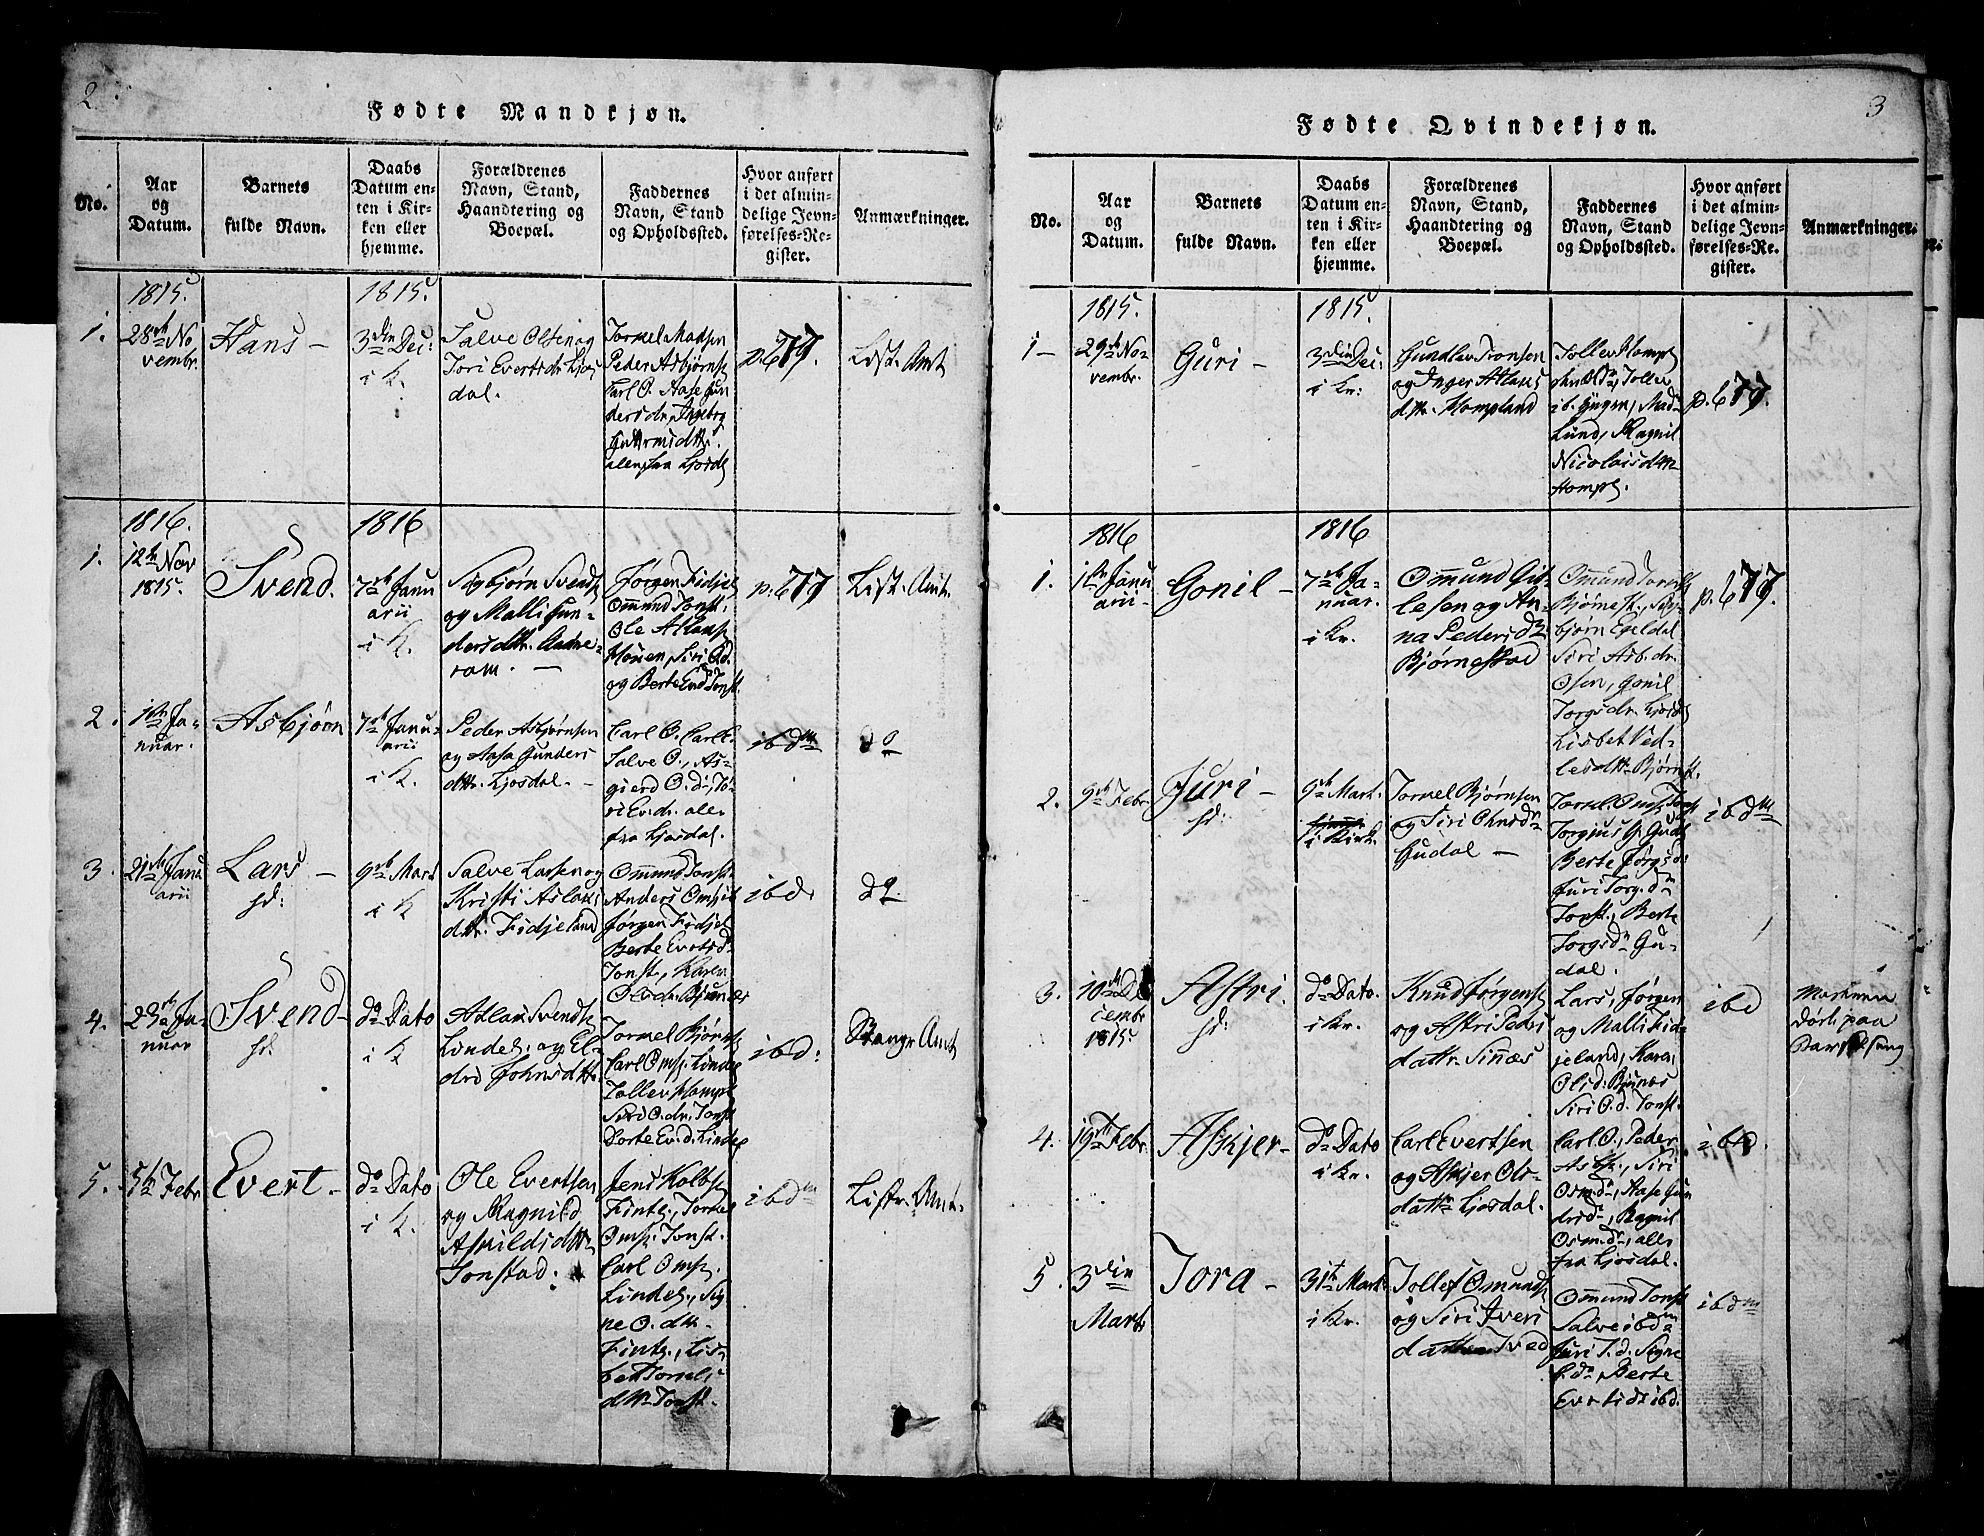 2
Fødte Mandkjøn.
No.
Aar
og
Datum.
Barnets
fulde Navn.
Daabs
Datum en-
ten i Kir-
ken eller
hjemme.
Forældrenes
Navn, Stand,
Haandtering og
Boepæl.
Faddernes
Navn, Stand
og Opholdssted.
Hvor anført
i det almin-
delige Jevn-
førelses-Re-
gister.
Anmærkninger.
1815.
1.
28de No
vembr.
Hans –
1815.
3die Dec:
i K.
Salve Olsen og
Tori Evertsdr. Lios
dal.
Tormel Madsen
Peder Asbjørns.
Carl O. Aase Gun
dersdr., Ingeborg
alle fra Liosd.
p. 677.
List. Amt
1816.
1.
12te Nov
1815.
Svend.
1816
7de Janu
arii
i K.
Sigbjørn Svends.
og Malli Gun-
dersdtr.
ram. –
Jørgen Fidjel.
Ommund Tonst.
Ole Atlaks.
Mouen, Siri O.d.
og Berte End. Tonst.
p. 677
List. Amt.
2.
1ste Ja-
nuar.
Asbjørn
7de Janu-
arii
i K.
Peder Asbjørnsen
og Aasa Gunders
dtr. Liosdal. –
Carl O. Carl E.
Salve O., As-
gierd O.d., To-
ri Ev.dr. alle
fra Liosdal.
ibdm
do
3.
21de Janu
arii
Lars –
sd:
9de Mars
i K
Salve Larsen og
Kristi Aslaks
dtr. Fidjeland
Ommund Tonst.
Anders Oms. ib
Jørgen Fidjel.
Berte Evertsd.
Tonst., Karen
Ols.dr. Bjunæs
ibd.
do
4.
23de Ja-
nuar
Svend –
sd.
do Dato
i K
Atlak Svends.
Lindel. og El-
dri Johnsdtr.
Tormel Bjørns.
Carl Oms. Lindel.
Tollev Hompl.
Siri O.dr. Tonst.
Dorte Ev.d. Lindel.
ibd:
Stavgr Amt
5.
5te Febr
Evert –
do Dato
i K.
Ole Evertsen
og Ragnild
Asvildsdtr.
Tonstad.
Jens Kolbs.
Fintl., Torkel
Oms. Tonst.
Carl Oms.
Lindel., Sig
ne O. dtr.
Fintl., Lis-
bet Tormels
dtr. Tonst.
ibdm
Listr. Amt.
3
Fødte Qvindekjøn.
No.
Aar
og
Datum.
Barnets
fulde Navn.
Daabs
Datum en-
ten i Kir-
ken eller
hjemme.
Forældrenes
Navn, Stand,
Haandtering og
Boepæl.
Faddernes
Navn, Stand
og Opholdssted.
Hvor anført
i det almin-
delige Jevn-
førelses-Re-
gister.
Anmærkninger.
1815.
1 –
29de No
vembr.
Guri –
1815.
3die Dec:
i Kr:
Gundlev Tronsen
og Inger Atlaks
dtr. Hompland
Tollev Hompl.
Tollev
ib.
Lund, Ragnil
Nicolaisdtr
Hompl.
p. 677.
1816
1.
1ste Janu
arii –
Gonil –
1816
7de Ja-
nuar.
i Kr.
Ommund Git-
lesen og An-
na Pedersdr
Bjørnestad
Ommund Tormels.
Bjørnest., Sig-
bjørn Egeldal
Siri Asb.dr.
Osen, Gonil
Torgsdr. Liosd.
Lisbet Ved-
lesdtr. Bjørnst.
p. 677.
2.
9de Febr
Juri –
sd:
9de Mart.
i Kirk.
Tormel Bjørnsen
og Siri Ohnsdr
Gudal –
Tormel Oms. Tonst
Torgjus G. Guds
Berte Jørgsd.
Juri Torg.d.
Tonst., Berte
Torgsdr Gu-
dal.
ibdm
3.
10de De
cembr
1815.
Astri.
sd:
do Dato.
i Kr.
Knud Jørgens.
og Astri Peders
datr. Sinnæs
Lars, Jørgen
og Malli Fid-
jeland, Karen
Olsd. Bjunæs
Siri O.d. Tonst.
ibd
Moderen
død paa
Barselseng
4.
19de Febr.
Askjer –
do Dato
i Kr.
Carl Evertsen
og Askjer Ols-
datr Liosdal.
Carl O., Peder
Asb., Siri
Osm.dr, Aase Gun
drsdr, Ragnil
Osm.dr, alle
fra Liosdal.
ibd.
5.
3die
Marts
Tora –
31te Mart.
i Kr.
Tollef Omunds.
og Siri Iveri
datter Tved
Ommund Tonst
Salve ibdm
Juri T. d. Signe
E.dr Berte
Evertsdr ibd.
ibdm